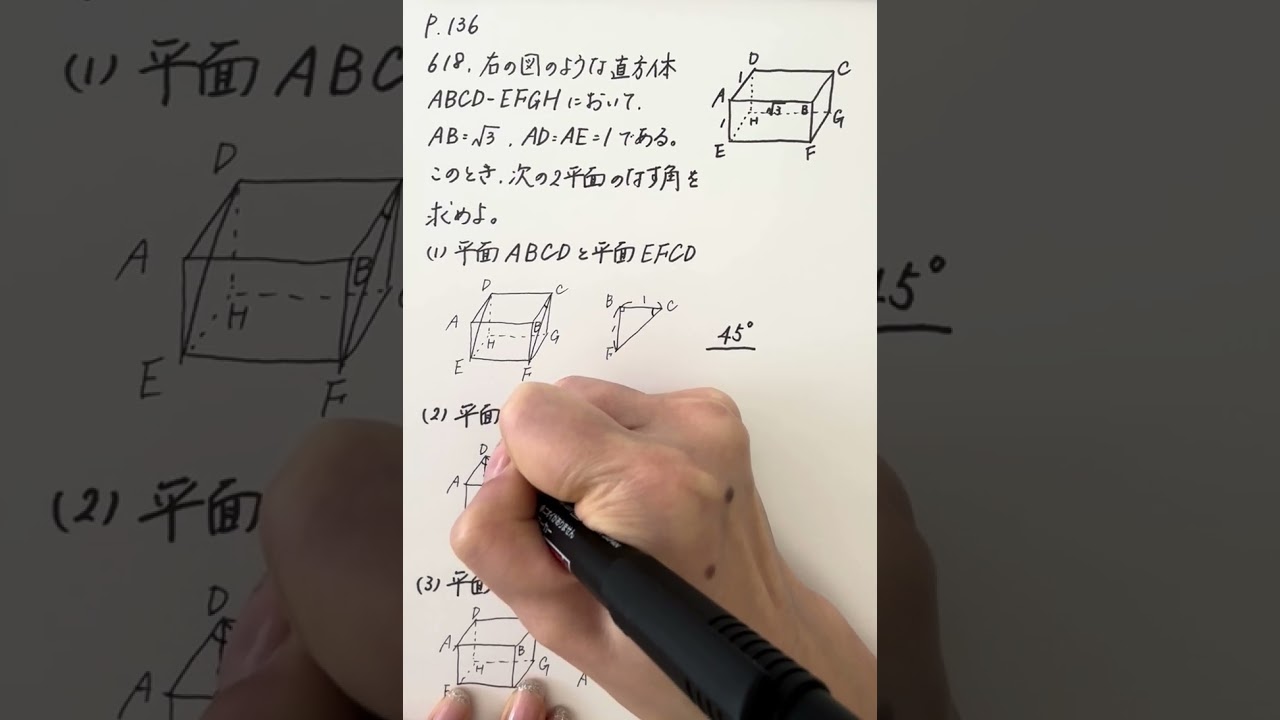 P.136
618. 右の図のような直方体
ABCD-EFGHにおいて.
AB=√3 . AD=AE=1である。
このとき. 次の2平面のなす角を
求めよ。
D
C
1
A
√3
B
H
G
1
E
F
(1) 平面ABCDと平面EFCD
D
C
A
B
H
G
E
F
B
1
C
F
45°
(2) 平面
D
A
(3) 平面
D
A
B
H
G
A
(1) 平面ABC
D
A
B
H
E
F
45°
(2) 平面
D
A